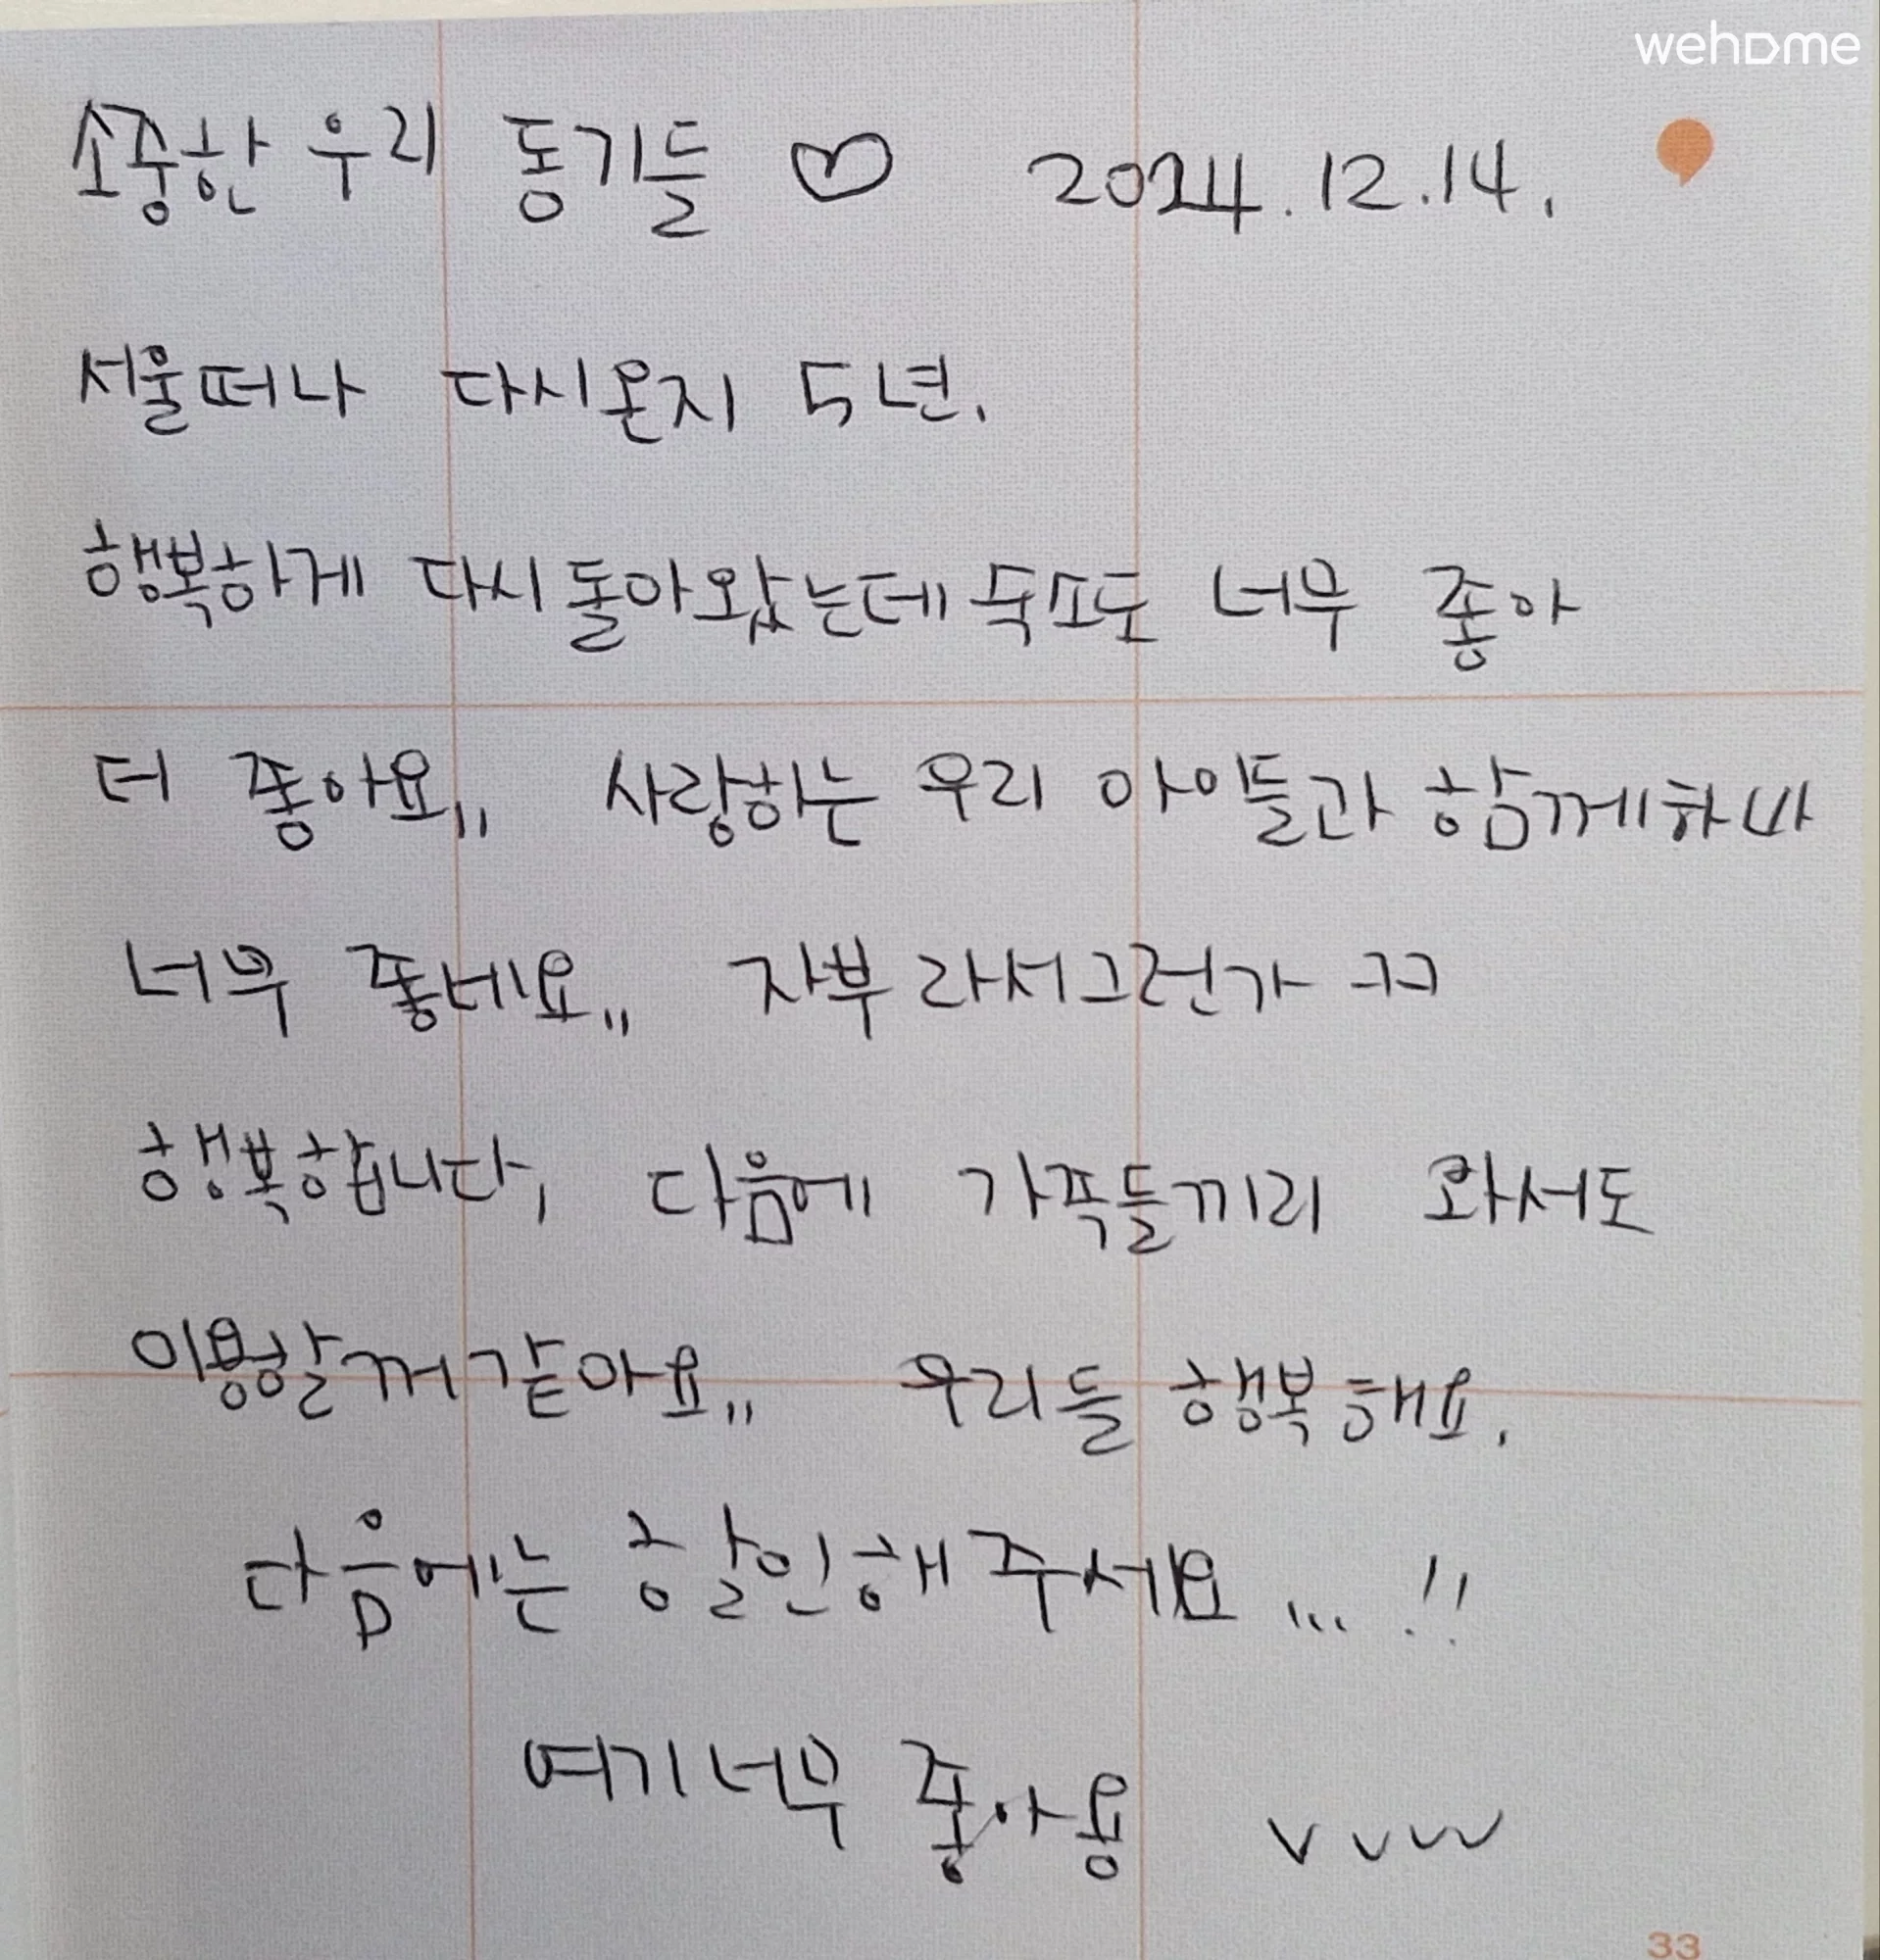 wehome
소중한 우리 동기들 ♡ 2024.12.14.
서울떠나 다시온지 5년.
행복하게 다시돌아왔는데 숙소도 너무 좋아
더 좋아요,, 사랑하는 우리 아이들과 함께하니까
너무 좋네요,, 자부 라서그런가 ㅋㅋ
행복합니다, 다음에 가족들끼리 와서도
이용할꺼같아요,, 우리들 행복해요.
다음에는 할인해주세요...!!
여기너무 좋아용 vvvv
33